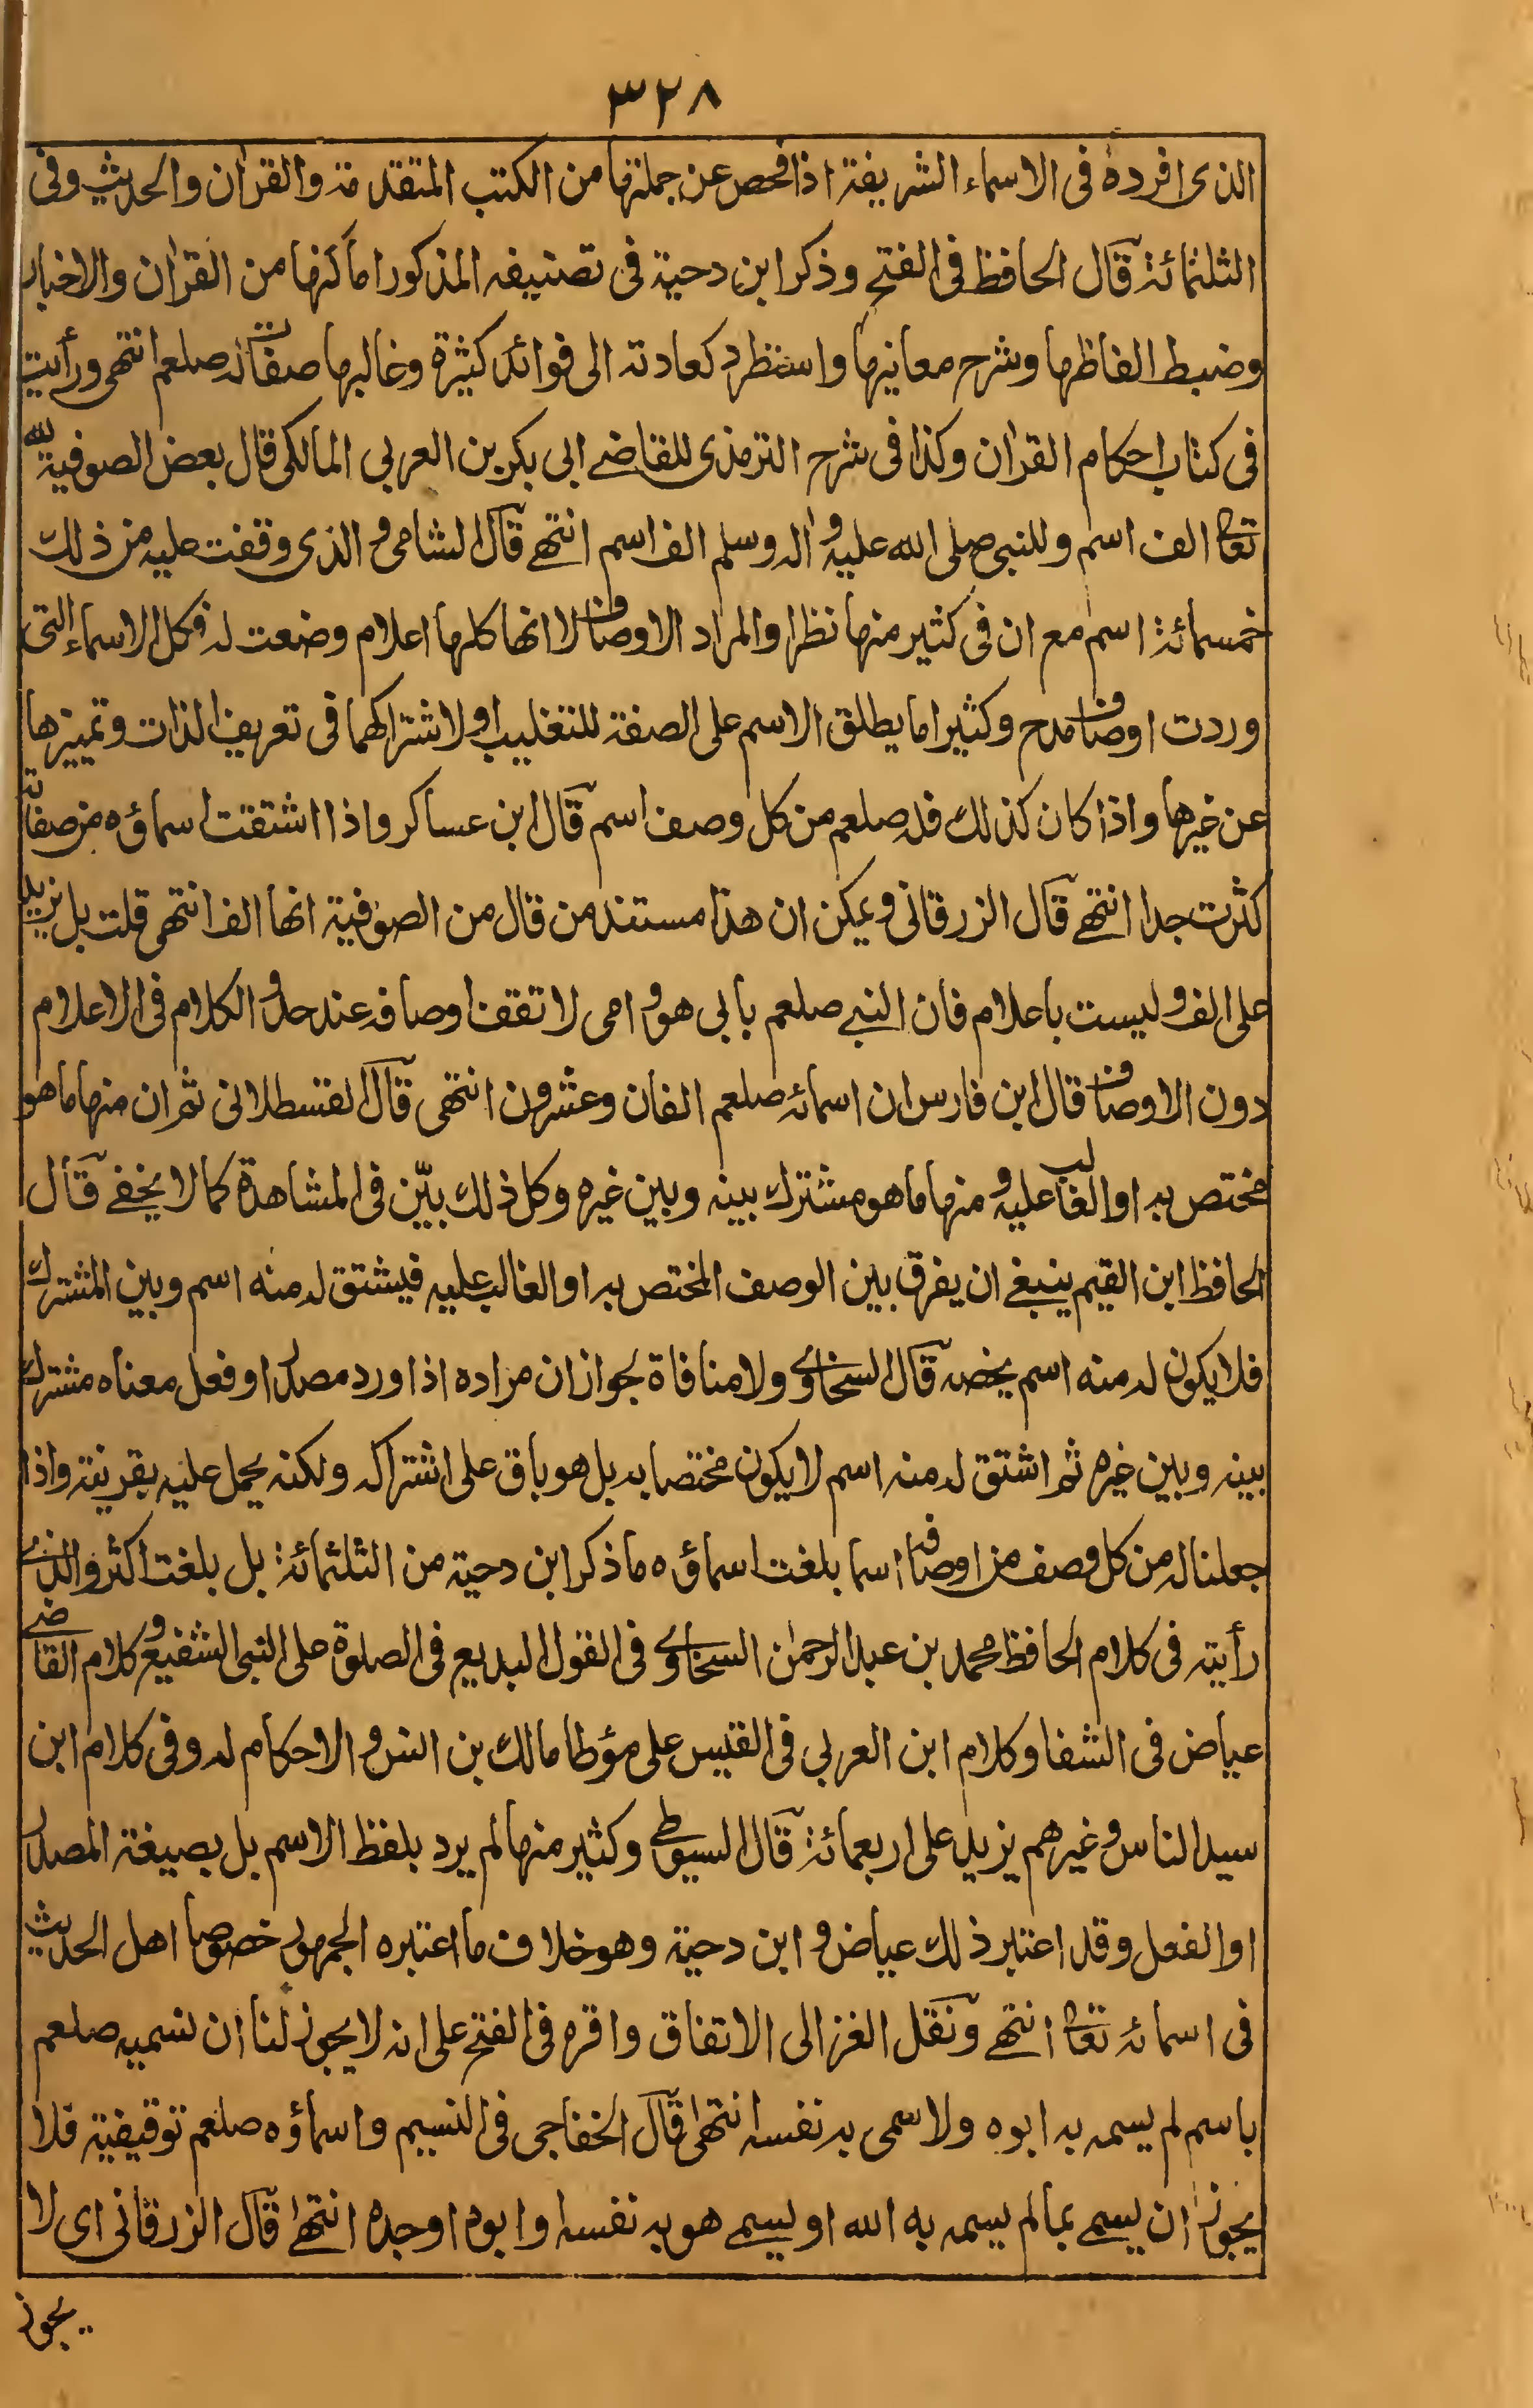 ٣٢٨
الذى افرده فى الاسماء الشريفة اذا فحص عن جملتها من الكتب المتقدمة والقرآن والحديث وفى
الثلثمائة قال الحافظ فى الفتح وذكر ابن دحية فى تصنيفه المذكور اماكنها من القرآن والاخبار
وضبط الفاظها وشرح معانيها واستطرد كعادته الى فوائد كثيرة وغالبها صفاته صلعم انتهى ورأيت
فى كتاب احكام القرآن وكذا فى شرح الترمذى للقاضے ابى بكر بن العربي المالكى قال بعض الصوفية لله
تعالى الف اسم وللنبي صلى الله عليه وآله وسلم الف اسم انتهے قال الشامى والذى وقفت عليه من ذلك
خمسمائة اسم مع ان فى كثير منها نظرا والمراد الاوصاف لا انها كلها اعلام وضعت له فكل الاسماء التى
وردت اوصاف مدح وكثيرا ما يطلق الاسم على الصفة للتغليب او لاشتراكهما فى تعريف الذات وتمييزها
عن غيرها واذا كان كذلك فله صلعم من كل وصف اسم قال ابن عساكر واذا اشتقت اسماؤه من صفاته
كثرت جدا انتهے قال الزرقانى ويمكن ان هذا مستند من قال من الصوفية انها الف انتهى قلت بل يزيد
على الف وليست باعلام فان النبے صلعم بابى هو وامى لا تقف اوصافه عند حد والكلام فى الاعلام
دون الاوصاف قال ابن فارس ان اسمائه صلعم الفان وعشرون انتهى قال القسطلانى ثم ان منها ما هو
مختص به او الغالب عليه ومنها ما هو مشترك بينه وبين غيره وكل ذلك بيّن فى المشاهدة كما لا يخفے قال
الحافظ ابن القيم ينبغے ان يفرق بين الوصف المختص به او الغالب عليه فيشتق له منه اسم وبين المشترك
فلا يكون له منه اسم يخصه قال السخاوے ولا منافاة لجواز ان مراده اذا ورد مصدر او فعل معناه مشترك
بينه وبين غيره ثم اشتق له منه اسم لا يكون مختصا به بل هو باق على اشتراكه ولكنه يحمل عليه بقرينة واذا
جعلنا له من كل وصف من اوصافه اسما بلغت اسماؤه ما ذكر ابن دحية من الثلثمائة بل بلغت اكثر والذے
رأيته فى كلام الحافظ محمد بن عبد الرحمن السخاوے فى القول البديع فى الصلوة على النبى الشفيع وكلام القاضے
عياض فى الشفا وكلام ابن العربي فى القبس على مؤطا مالك بن انس والاحكام له وفى كلام ابن
سيد الناس وغيرهم يزيد على اربعمائة قال السيوطے وكثير منها لم يرد بلفظ الاسم بل بصيغة المصدر
او الفعل وقد اعتبر ذلك عياض وابن دحية وهو خلاف ما اعتبره الجمهور خصوصا اهل الحديث
فى اسمائه تعالى انتهے ونقل الغزالى الاتفاق واقره فى الفتح على انه لا يجوز لنا ان نسميه صلعم
باسم لم يسمه به ابوه ولا سمى به نفسه انتهى قال الخفاجى فى النسيم واسماؤه صلعم توقيفية فلا
يجوز ان يسمے بما لم يسمه به الله او يسمے هو به نفسه او ابوه او جده انتهے قال الزرقانى اى لا
يجوز